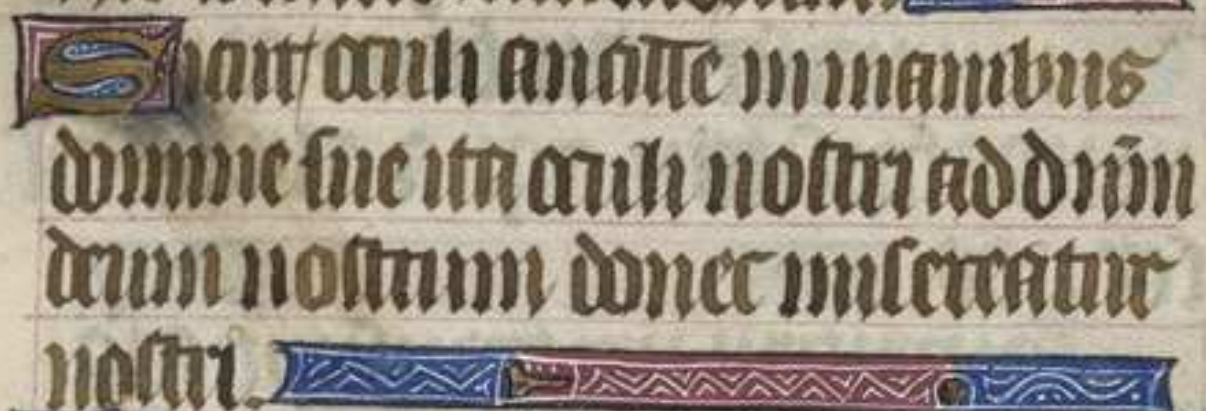 Sicut oculi ancille in manibus
domine sue ita oculi nostri ad dn̄m
deum nostrum donec misereatur
nostri.